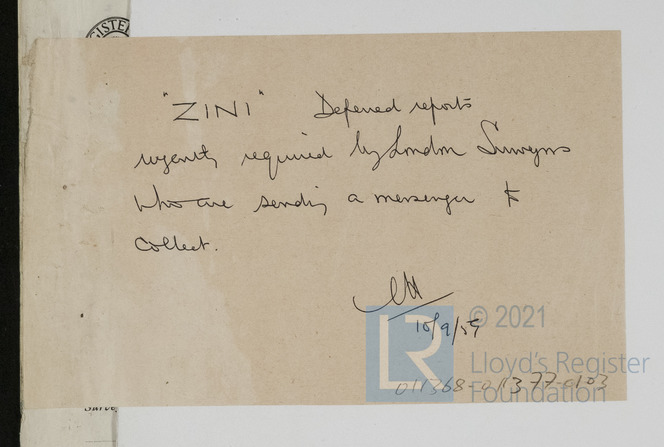 "ZINI" Deferred reports
urgently required by London Surveyors
who are sending a messenger to
collect.
10/9/59
© 2021
LR
Lloyd's Register
Foundation
011368-011377-0103